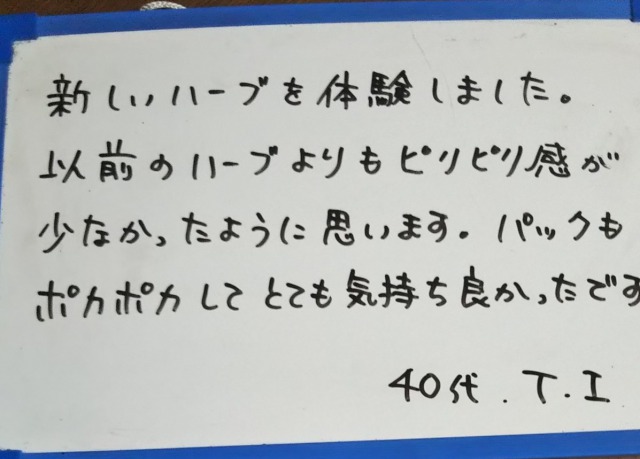 新しいハーブを体験しました。
以前のハーブよりもピリピリ感が
少なかったように思います。パックも
ポカポカしてとても気持ち良かったです
40代.T.I